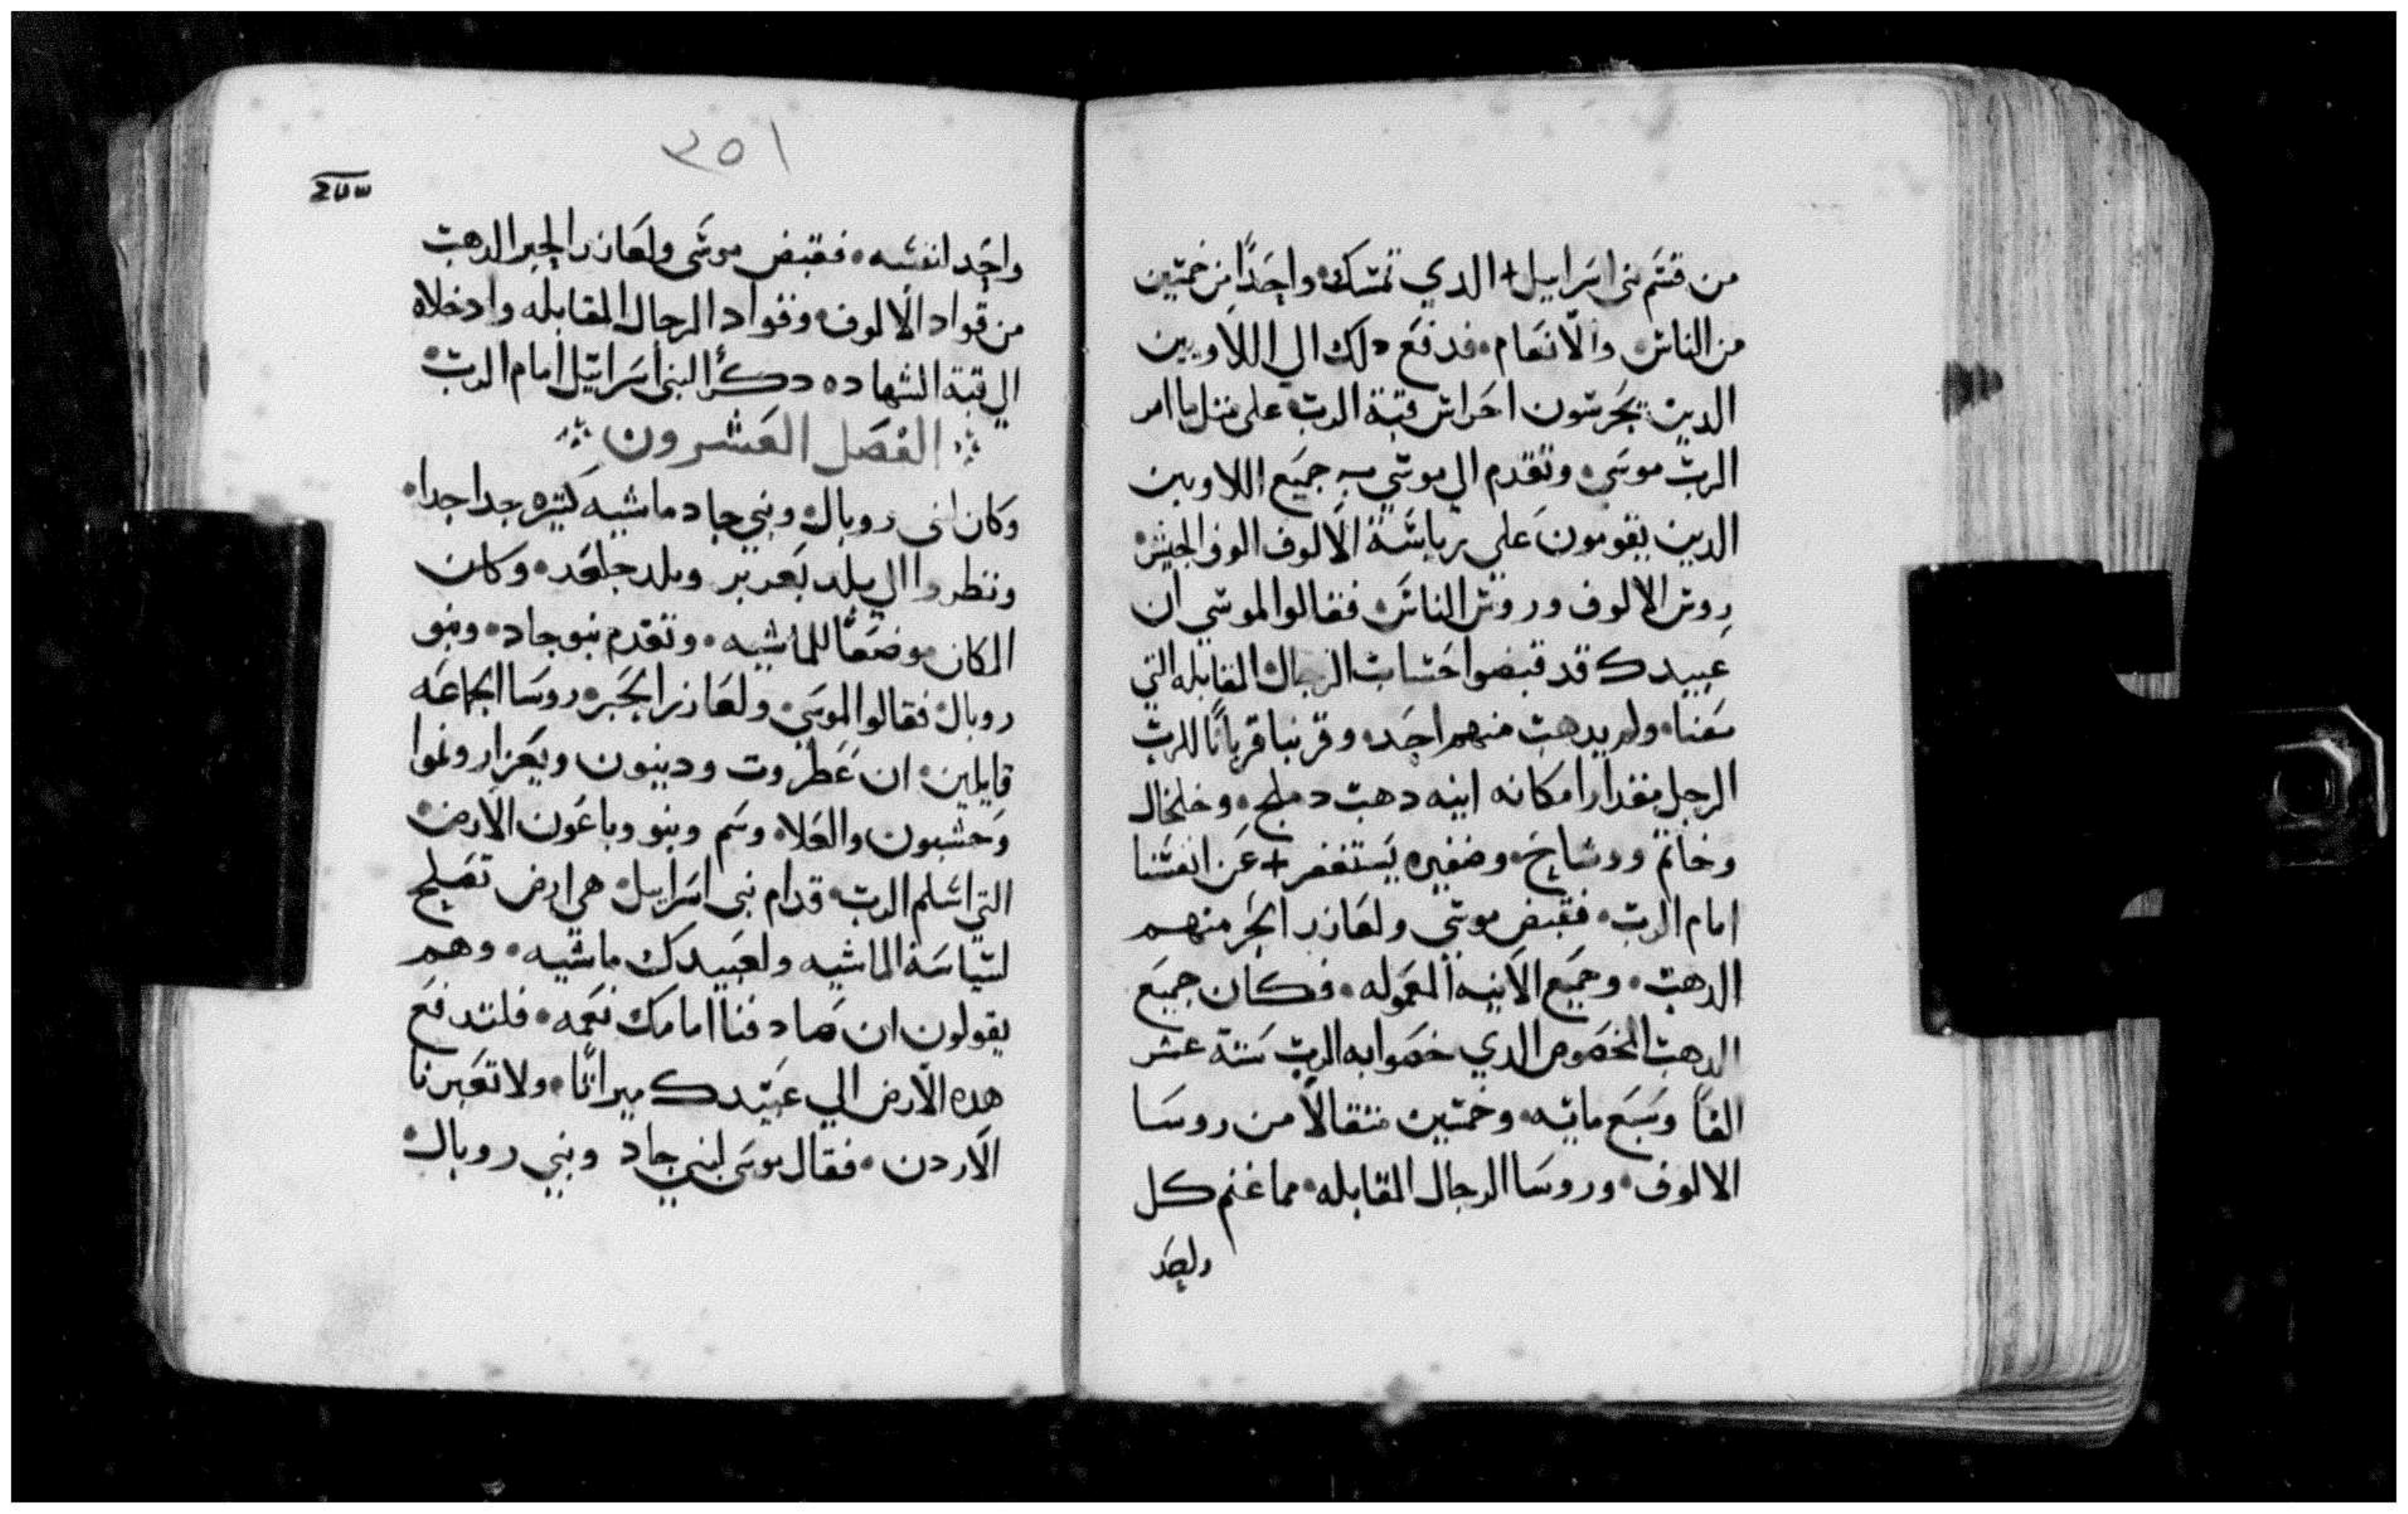 من قسم بنى اسراييل + الدي تمسك واحدًا من خمسين
من الناس والانعام فدفع دلك الي اللاويين
الدين يحرسون احراس قبة الرب على مثل ما امر
الرب موسى وتقدم الي موسي جميع اللاويين
الدين يقومون علي رياسة الالوف الوف الجيش
روس الالوف وروس الناس فقالوا لموسي ان
عبيدك قد قبضوا حساب الرجال المقابله التي
معنا ولم يدهب منهم احد وقربنا قربانًا للرب
الرجل مقدار امكانه انيه دهب دملج وخلخال
وخاتم ووشاح وضفيره يستغفر + عن انفسنا
امام الرب فقبض موسي ولعازر الحبر منهم
الدهب وجميع الانيه المعموله فكان جميع
الدهب المخصوص الدي خصوا به الرب ستة عشر
الفًا وسبع مايه وخمسين مثقالاً من روسا
الالوف وروسا الرجال المقابله مما غنم كل
واحد
٣٥١
واحد لنفسه فقبض موسى ولعازر الحبر الدهب
من قواد الالوف وقواد الرجال المقابله وادخلاه
الي قبة الشهاده دكرًا لبنى اسرائيل امام الرب
الفصل العشرون
وكان لبنى روبال وبني جاد ماشيه كتيره جدا جدا
ونظروا الي بلد يعزير وبلد جلعد وكان
المكان موضعًا للماشيه وتقدم بنو جاد وبنو
روبال فقالوا لموسي ولعازر الحبر وروسا الجماعه
قايلين ان عطروت وديبون ويعزار ونموا
وحشبون والعلاه وسم ونبو وباعون الارض
التي اسلم الرب قدام بنى اسراييل هي ارض تصلح
لسياسة الماشيه ولعبيدك ماشيه وهم
يقولون ان صادفنا امامك نعمه فلتدفع
هده الارض الي عبيدك ميراثًا ولا تعبرنا
الاردن فقال موسى لبني جاد وبني روبال